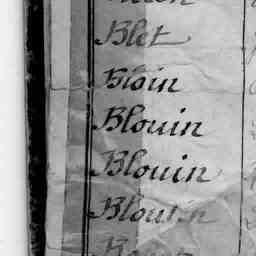 Blet
Bloin
Blouin
Blouin
Bloutin